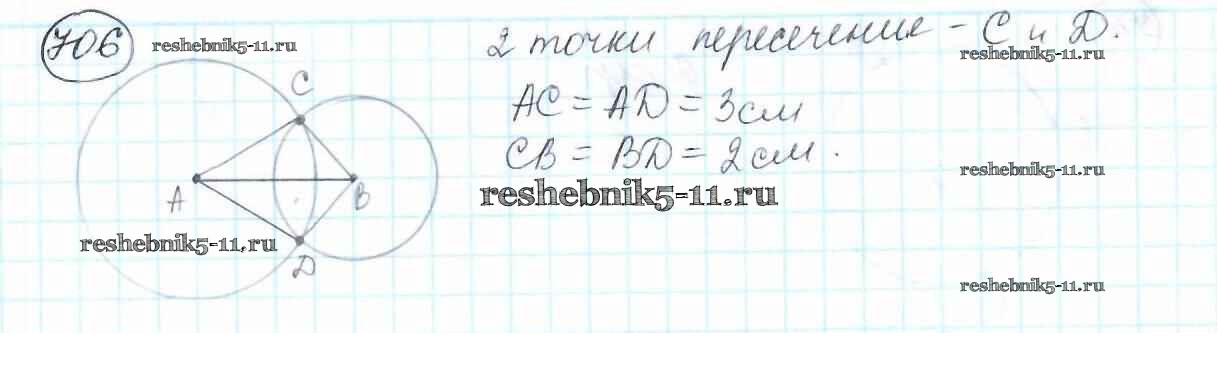 706
reshebnik5-11.ru
2 точки пересечения - С и D.
reshebnik5-11.ru
C
AC = AD = 3 см
CB = BD = 2 см.
reshebnik5-11.ru
A
B
reshebnik5-11.ru
reshebnik5-11.ru
D
reshebnik5-11.ru